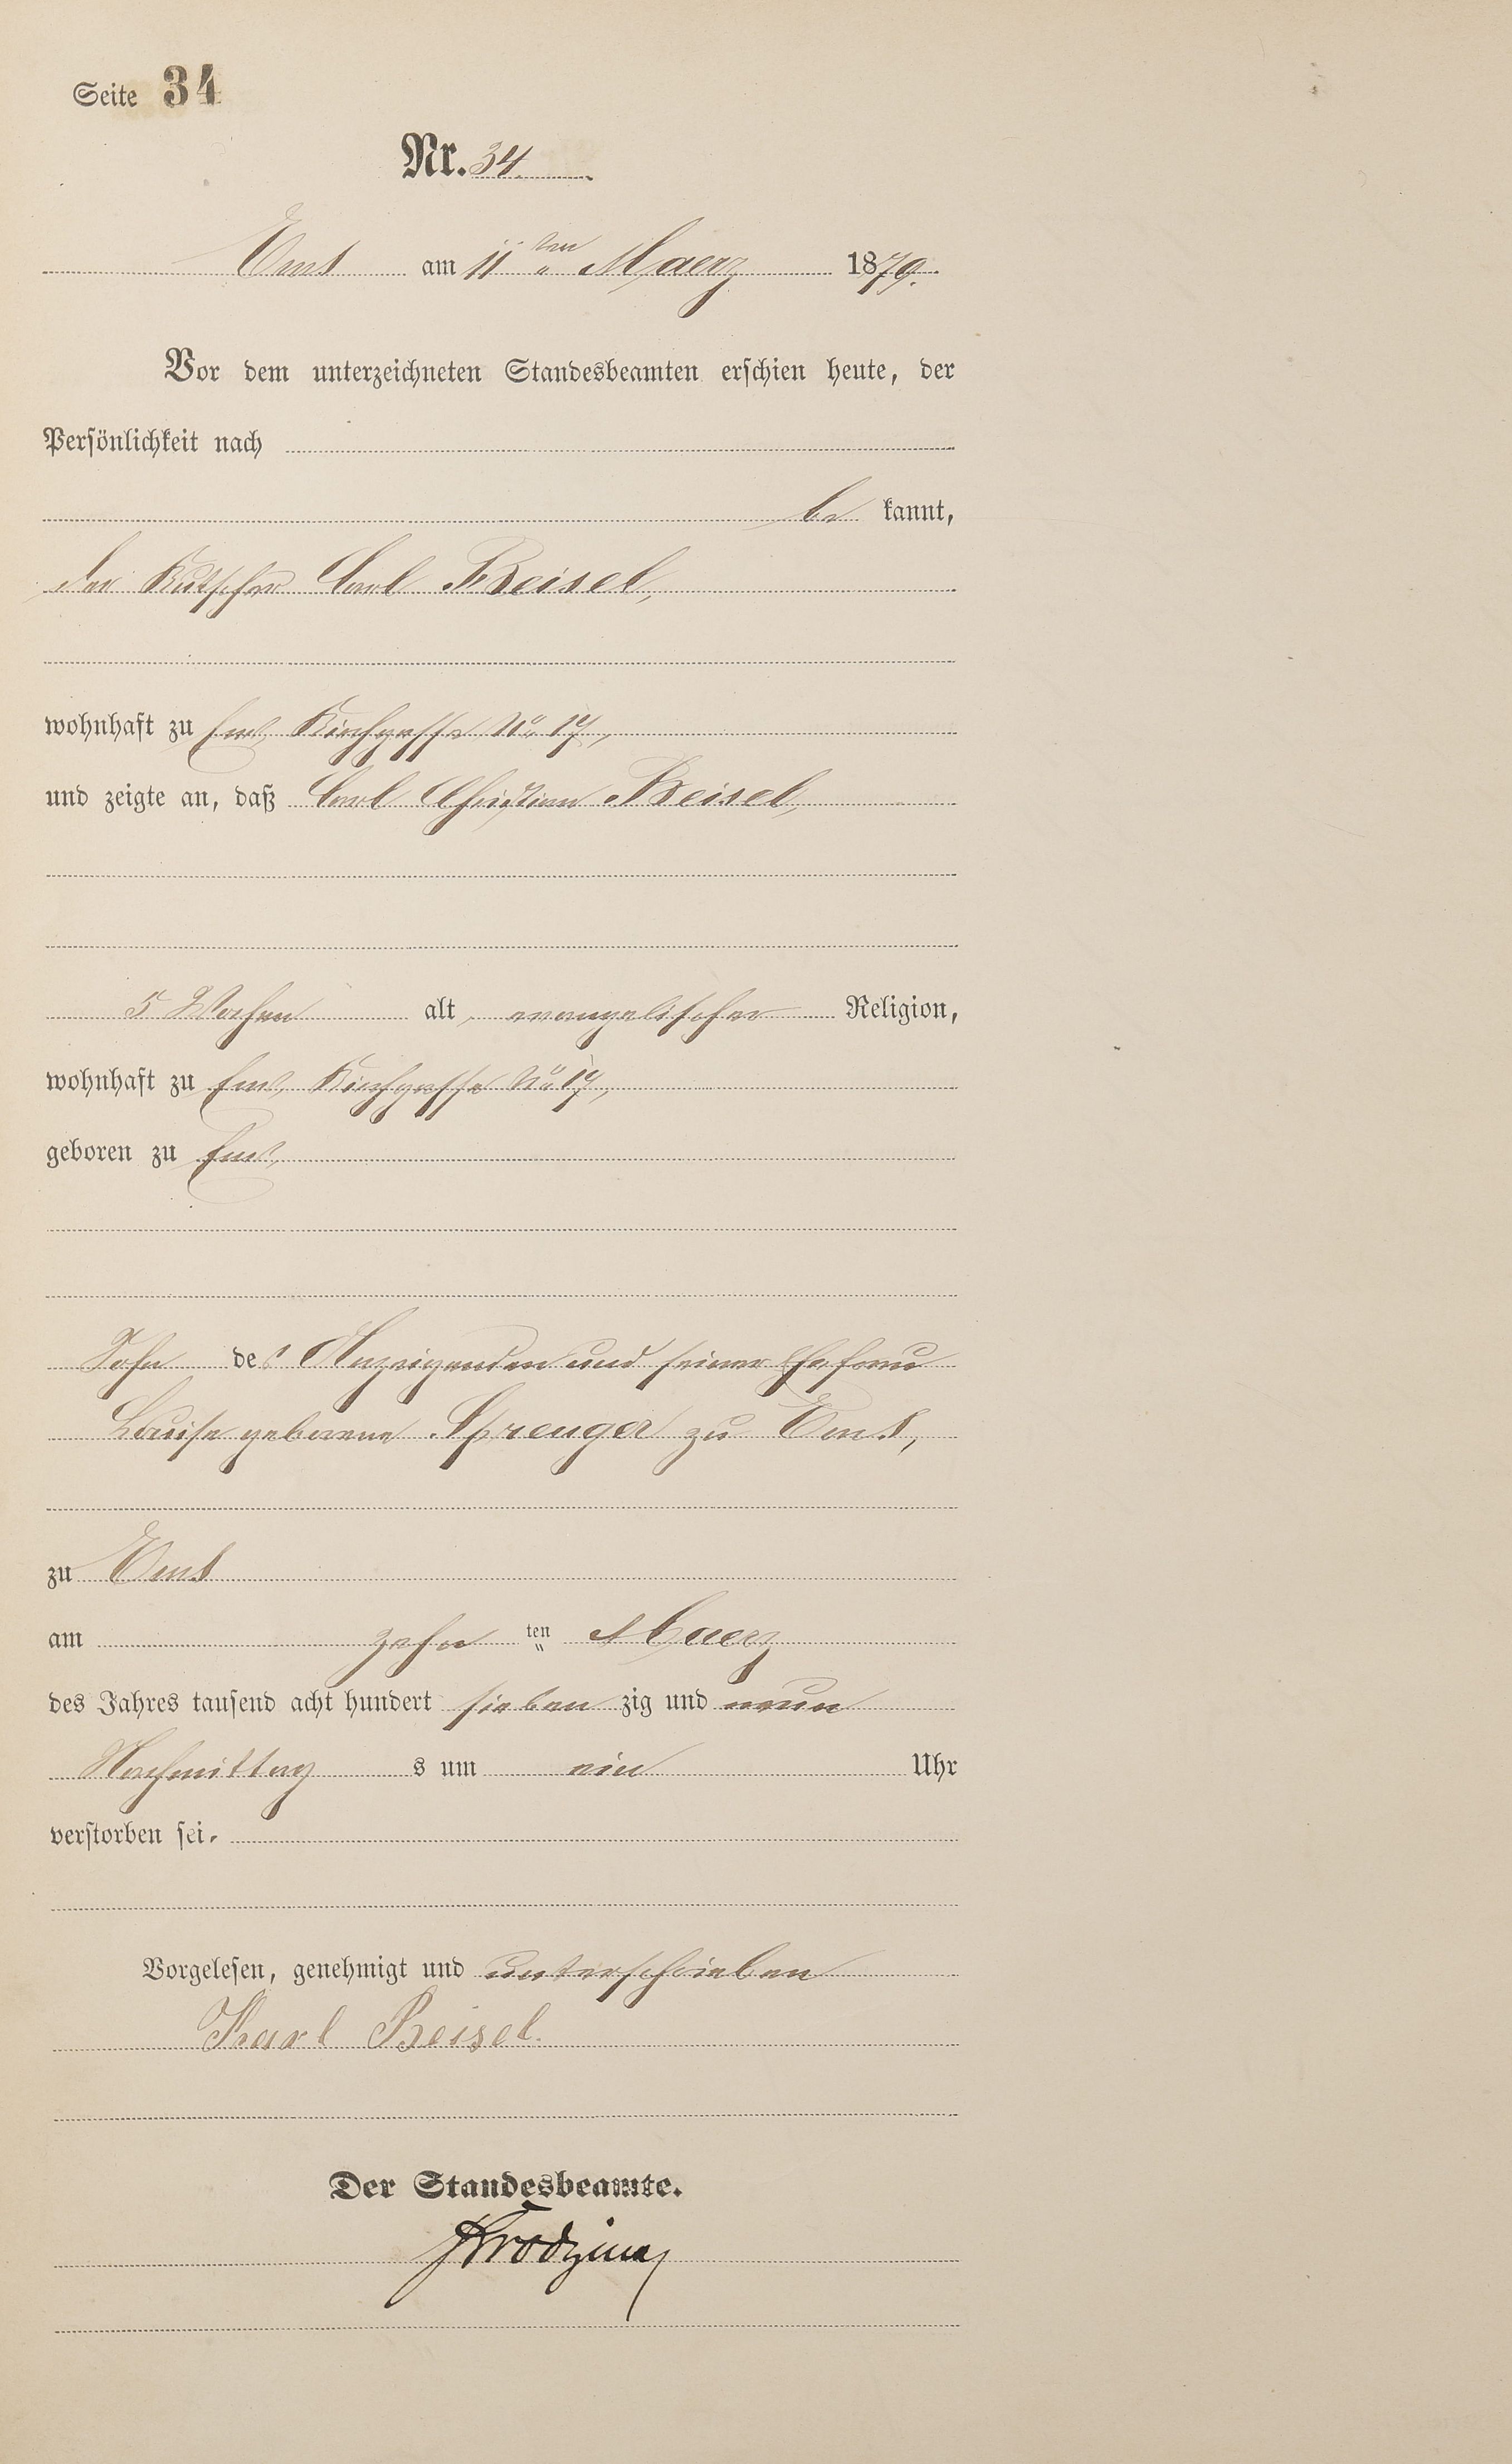 Seite 34
Nr. 34
Ems am 11ten Maerz 1879.
Vor dem unterzeichneten Standesbeamten erschien heute, der
Persönlichkeit nach
be kannt,
der Kutscher Carl Beisel,
wohnhaft zu Ems, Kirchgasse No 17,
und zeigte an, daß Carl Christian Beisel,
5 Wochen alt, evangelischer Religion,
wohnhaft zu Ems, Kirchgasse No 17,
geboren zu Ems,
Sohn des Anzeigenden und seiner Ehefrau
Louise geborene Sprenger zu Ems,
zu Ems
am zehn ten Maerz
des Jahres tausend acht hundert sieben zig und neun
Nachmittag s um ein Uhr
verstorben sei.
Vorgelesen, genehmigt und unterschrieben
Karl Beisel.
Der Standesbeamte.